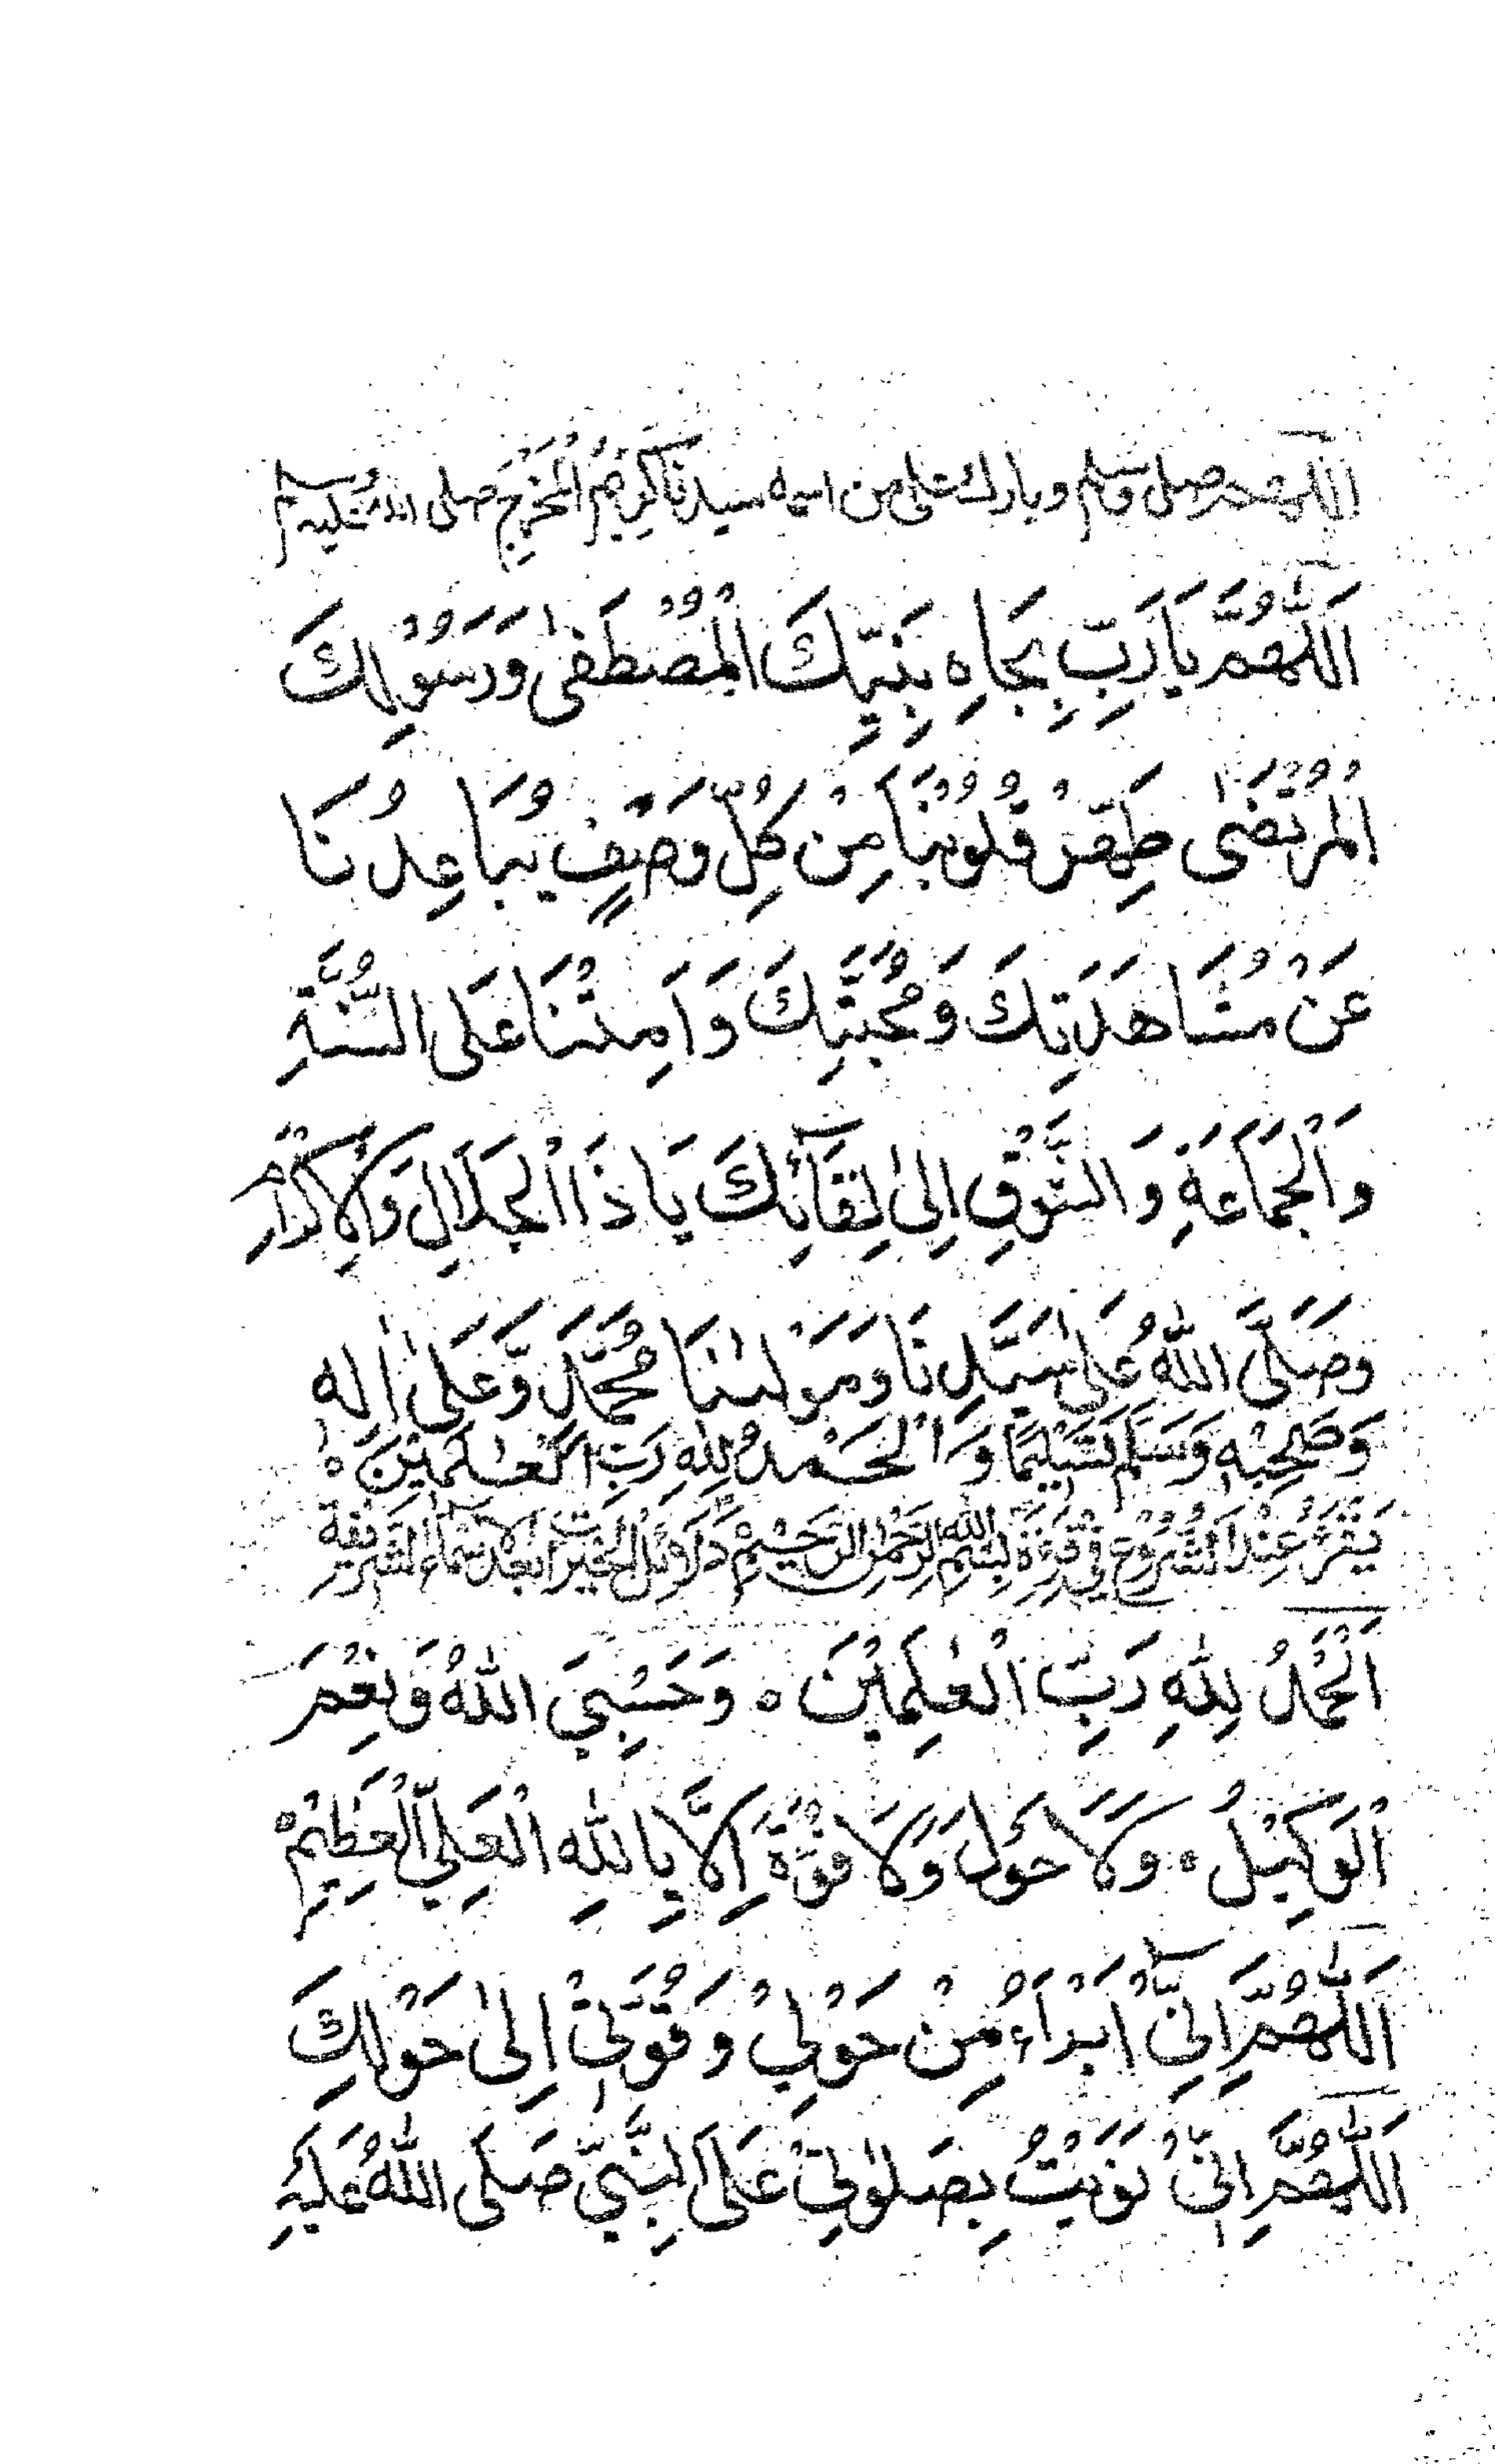 اللهم صل وسلم وبارك على من اسمه سيدنا كريم المخرج صلى الله عليه وسلم
اَللّٰهُمَّ يَا رَبِّ بِجَاهِ نَبِيِّكَ الْمُصْطَفٰى وَرَسُوْلِكَ
الْمُرْتَضٰى طَهِّرْ قُلُوْبَنَا مِنْ كُلِّ وَصْفٍ يُبَاعِدُنَا
عَنْ مُشَاهَدَتِكَ وَمُحَبَّتِكَ وَاَمِتْنَا عَلَى السُّنَّةِ
وَالْجَمَاعَةِ وَالشَّوْقِ اِلٰى لِقَآئِكَ يَا ذَا الْجَلَالِ وَالْاِكْرَامِ
وَصَلَّى اللّٰهُ عَلٰى سَيِّدِنَا وَمَوْلٰىنَا مُحَمَّدٍ وَّعَلٰى اٰلِهٖ
وَصَحْبِهٖ وَسَلَّمَ تَسْلِيْمًا وَالْحَمْدُ لِلّٰهِ رَبِّ الْعٰلَمِيْنَ ه
يَقْرَءُ عِنْدَ الشُّرُوْعِ فِيْ قِرَءَةِ بِسْمِ اللّٰهِ الرَّحْمٰنِ الرَّحِيْمِ دَلَائِلِ الْخَيْرَاتِ بَعْدَ الْاَسْمَآءِ الشَّرِيْفَةِ
اَلْحَمْدُ لِلّٰهِ رَبِّ الْعٰلَمِيْنَ ه وَحَسْبِيَ اللّٰهُ وَنِعْمَ
الْوَكِيْلُ ه وَلَا حَوْلَ وَلَا قُوَّةَ اِلَّا بِاللّٰهِ الْعَلِيِّ الْعَظِيْمِ ه
اَللّٰهُمَّ اِنِّيْٓ اَبْرَاُ مِنْ حَوْلِيْ وَقُوَّتِيْ اِلٰى حَوْلِكَ
اَللّٰهُمَّ اِنِّيْ نَوَيْتُ بِصَلٰوتِيْ عَلَى النَّبِيِّ صَلَّى اللّٰهُ عَلَيْهِ